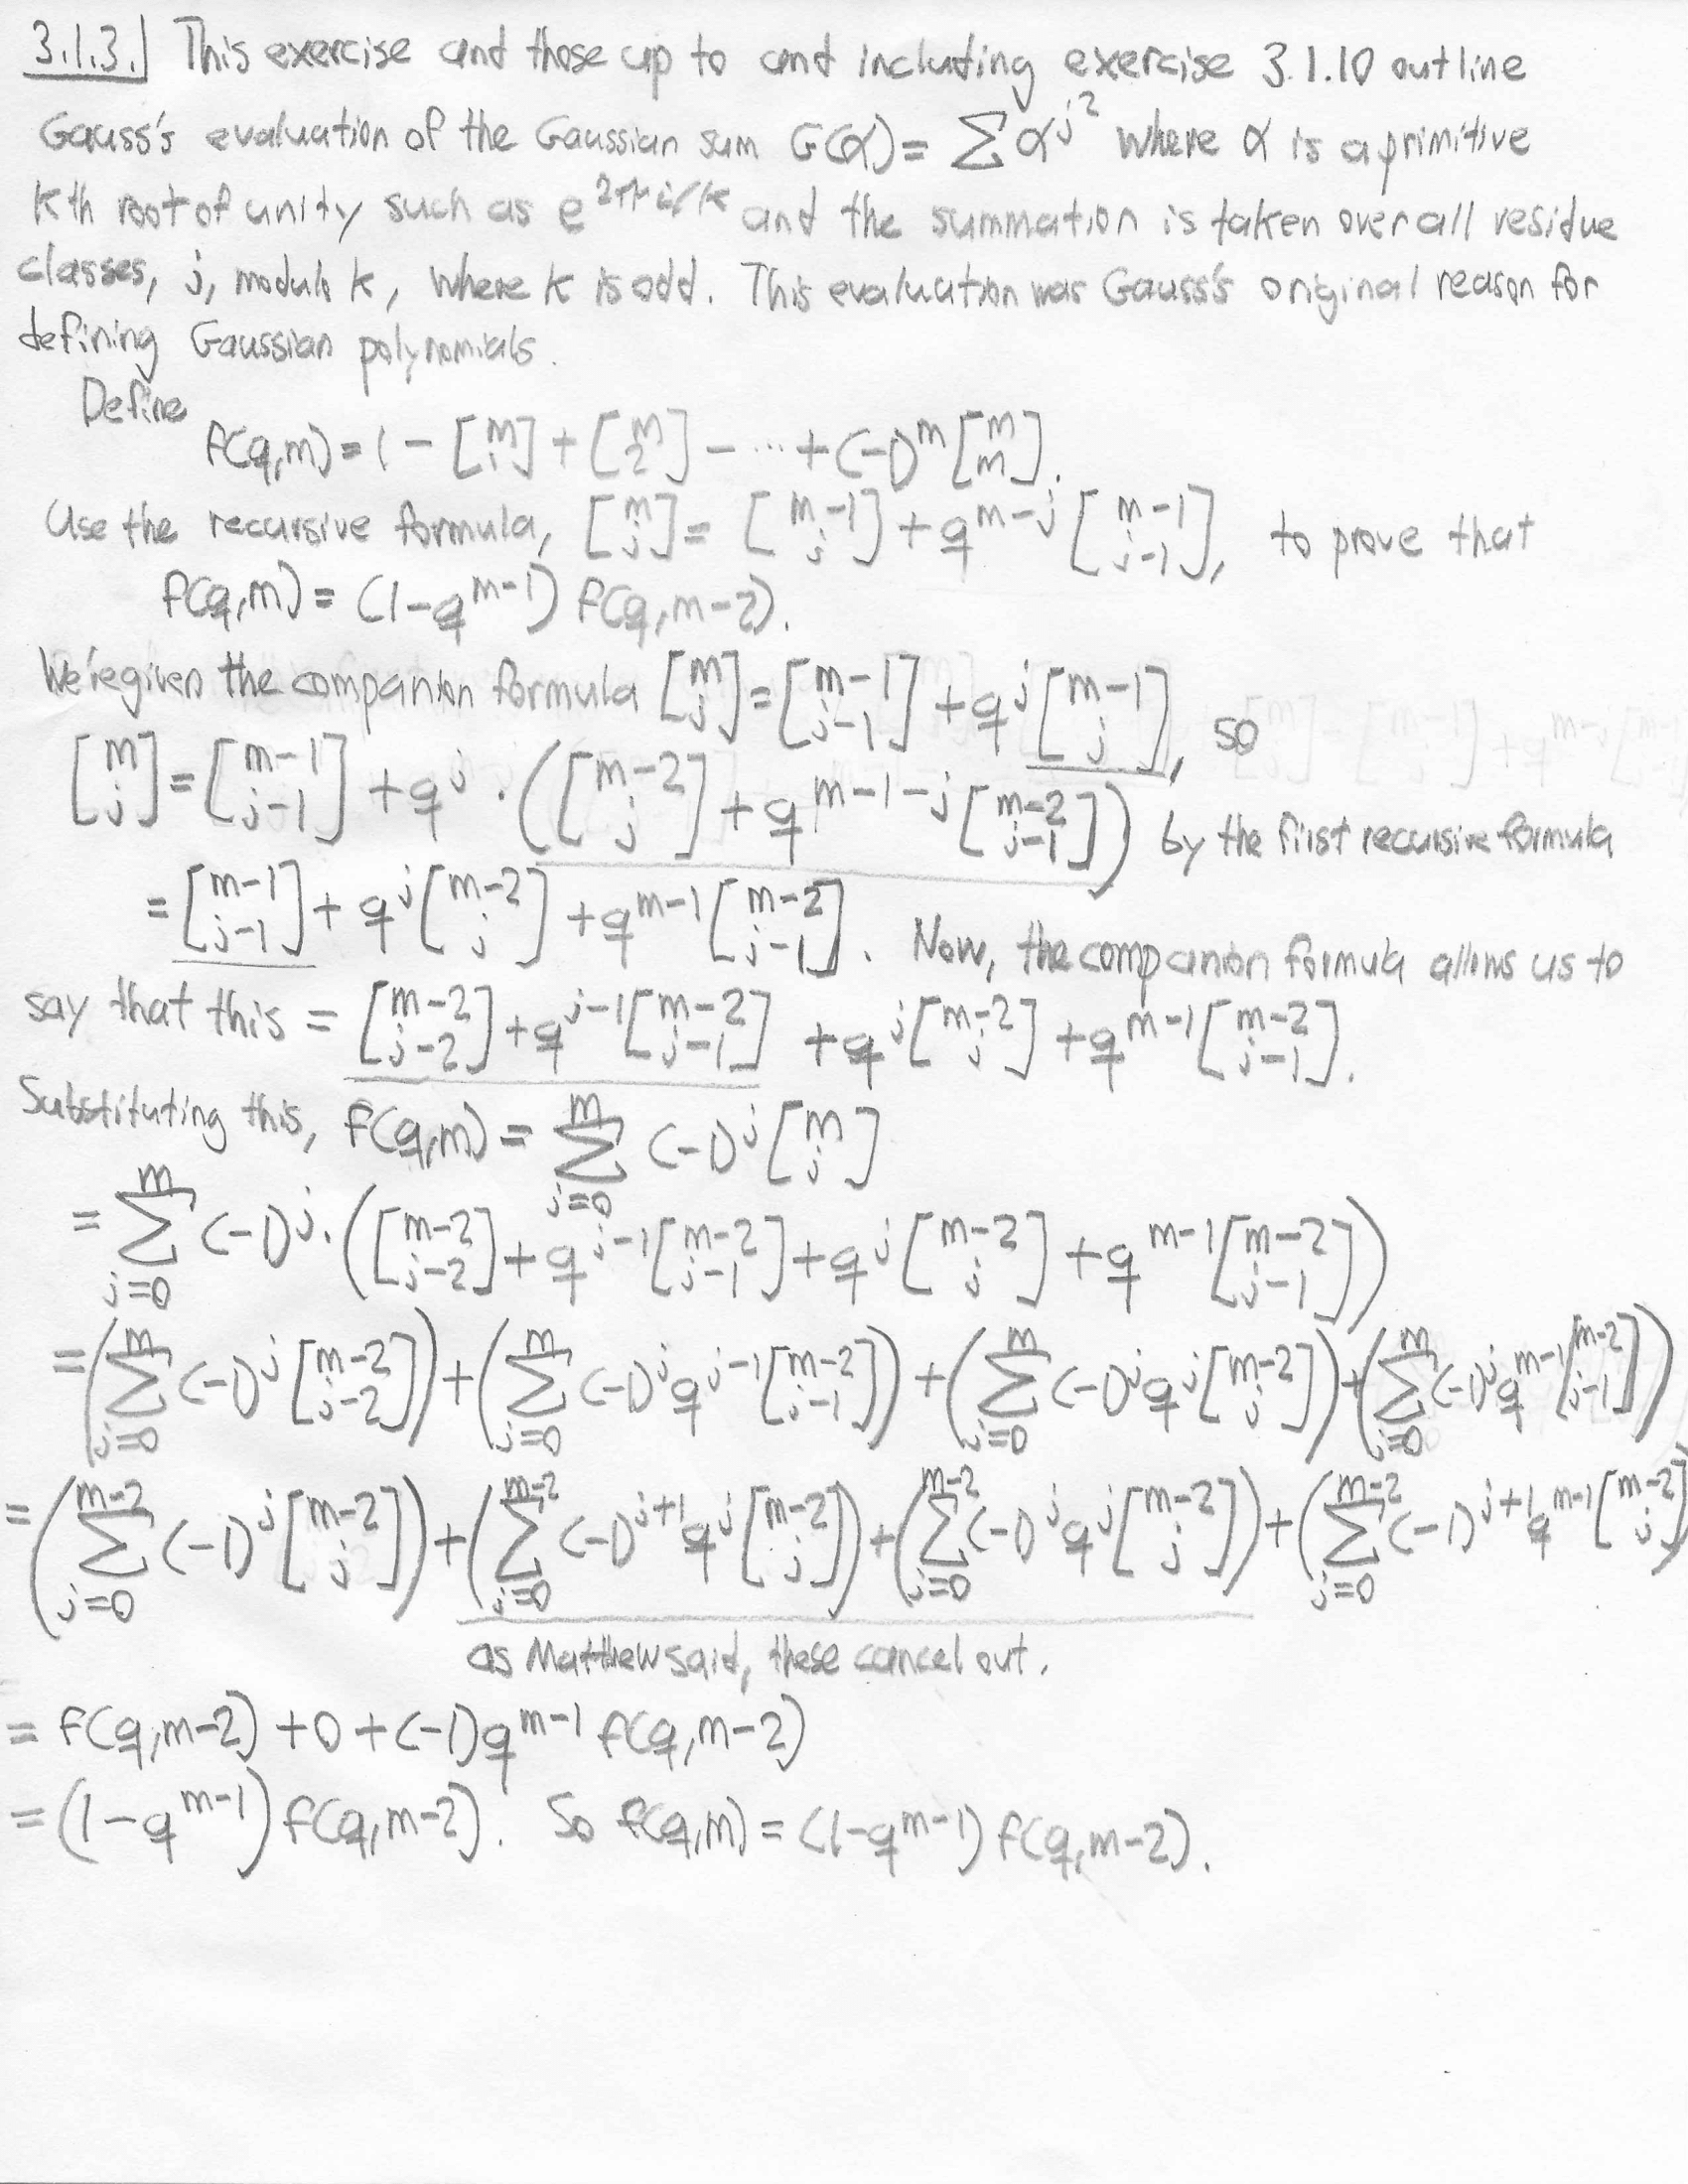 3.1.3.] This exercise and those up to and including exercise 3.1.10 outline
Gauss's evaluation of the Gaussian sum G(α) = Σ α^{j^2} where α is a primitive
kth root of unity such as e^{2πi/k} and the summation is taken over all residue
classes, j, modulo k, where k is odd. This evaluation was Gauss's original reason for
defining Gaussian polynomials.
Define
f(q,m) = 1 - [m 1] + [m 2] - ··· + (-1)^m [m m].
Use the recursive formula, [m j] = [m-1 j] + q^{m-j} [m-1 j-1], to prove that
f(q,m) = (1-q^{m-1}) f(q,m-2).
We're given the companion formula [m j] = [m-1 j-1] + q^j [m-1 j], so
[m j] = [m-1 j-1] + q^j · ([m-2 j] + q^{m-1-j} [m-2 j-1]) by the first recursive formula
= [m-1 j-1] + q^j [m-2 j] + q^{m-1} [m-2 j-1]. Now, the companion formula allows us to
say that this = [m-2 j-2] + q^{j-1} [m-2 j-1] + q^j [m-2 j] + q^{m-1} [m-2 j-1].
Substituting this, f(q,m) = Σ_{j=0}^{m} (-1)^j [m j]
= Σ_{j=0}^{m} (-1)^j · ([m-2 j-2] + q^{j-1} [m-2 j-1] + q^j [m-2 j] + q^{m-1} [m-2 j-1])
= (Σ_{j=0}^{m} (-1)^j [m-2 j-2]) + (Σ_{j=0}^{m} (-1)^j q^{j-1} [m-2 j-1]) + (Σ_{j=0}^{m} (-1)^j q^j [m-2 j]) + (Σ_{j=0}^{m} (-1)^j q^{m-1} [m-2 j-1])
= (Σ_{j=0}^{m-2} (-1)^j [m-2 j]) + (Σ_{j=0}^{m-2} (-1)^{j+1} q^j [m-2 j]) + (Σ_{j=0}^{m-2} (-1)^j q^j [m-2 j]) + (Σ_{j=0}^{m-2} (-1)^{j+1} q^{m-1} [m-2 j])
as Matthew said, these cancel out.
= f(q,m-2) + 0 + (-1) q^{m-1} f(q,m-2)
= (1-q^{m-1}) f(q,m-2). So f(q,m) = (1-q^{m-1}) f(q,m-2).